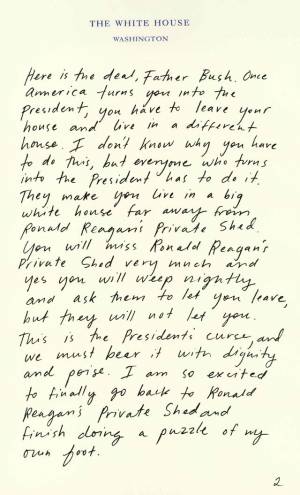 THE WHITE HOUSE
WASHINGTON
Here is the deal, Father Bush. Once
America turns you into the
President, you have to leave your
house and live in a different
house. I don't know why you have
to do this, but everyone who turns
into the President has to do it.
They make you live in a big
white house far away from
Ronald Reagan's Private Shed.
You will miss Ronald Reagan's
Private Shed very much and
yes you will weep nightly
and ask them to let you leave,
but they will not let you.
This is the President's curse, and
we must bear it with dignity
and poise. I am so excited
to finally go back to Ronald
Reagan's Private Shed and
finish doing a puzzle of my
own foot.
2